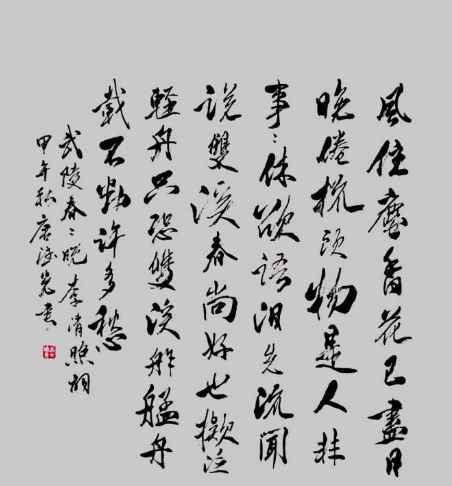 風住塵香花已盡日
晚倦梳頭物是人非
事〻休欲語泪先流聞
説雙溪春尚好也擬泛
輕舟只恐雙溪舴艋舟
載不動許多愁
武陵春〻晚李清照詞
甲午秋唐書